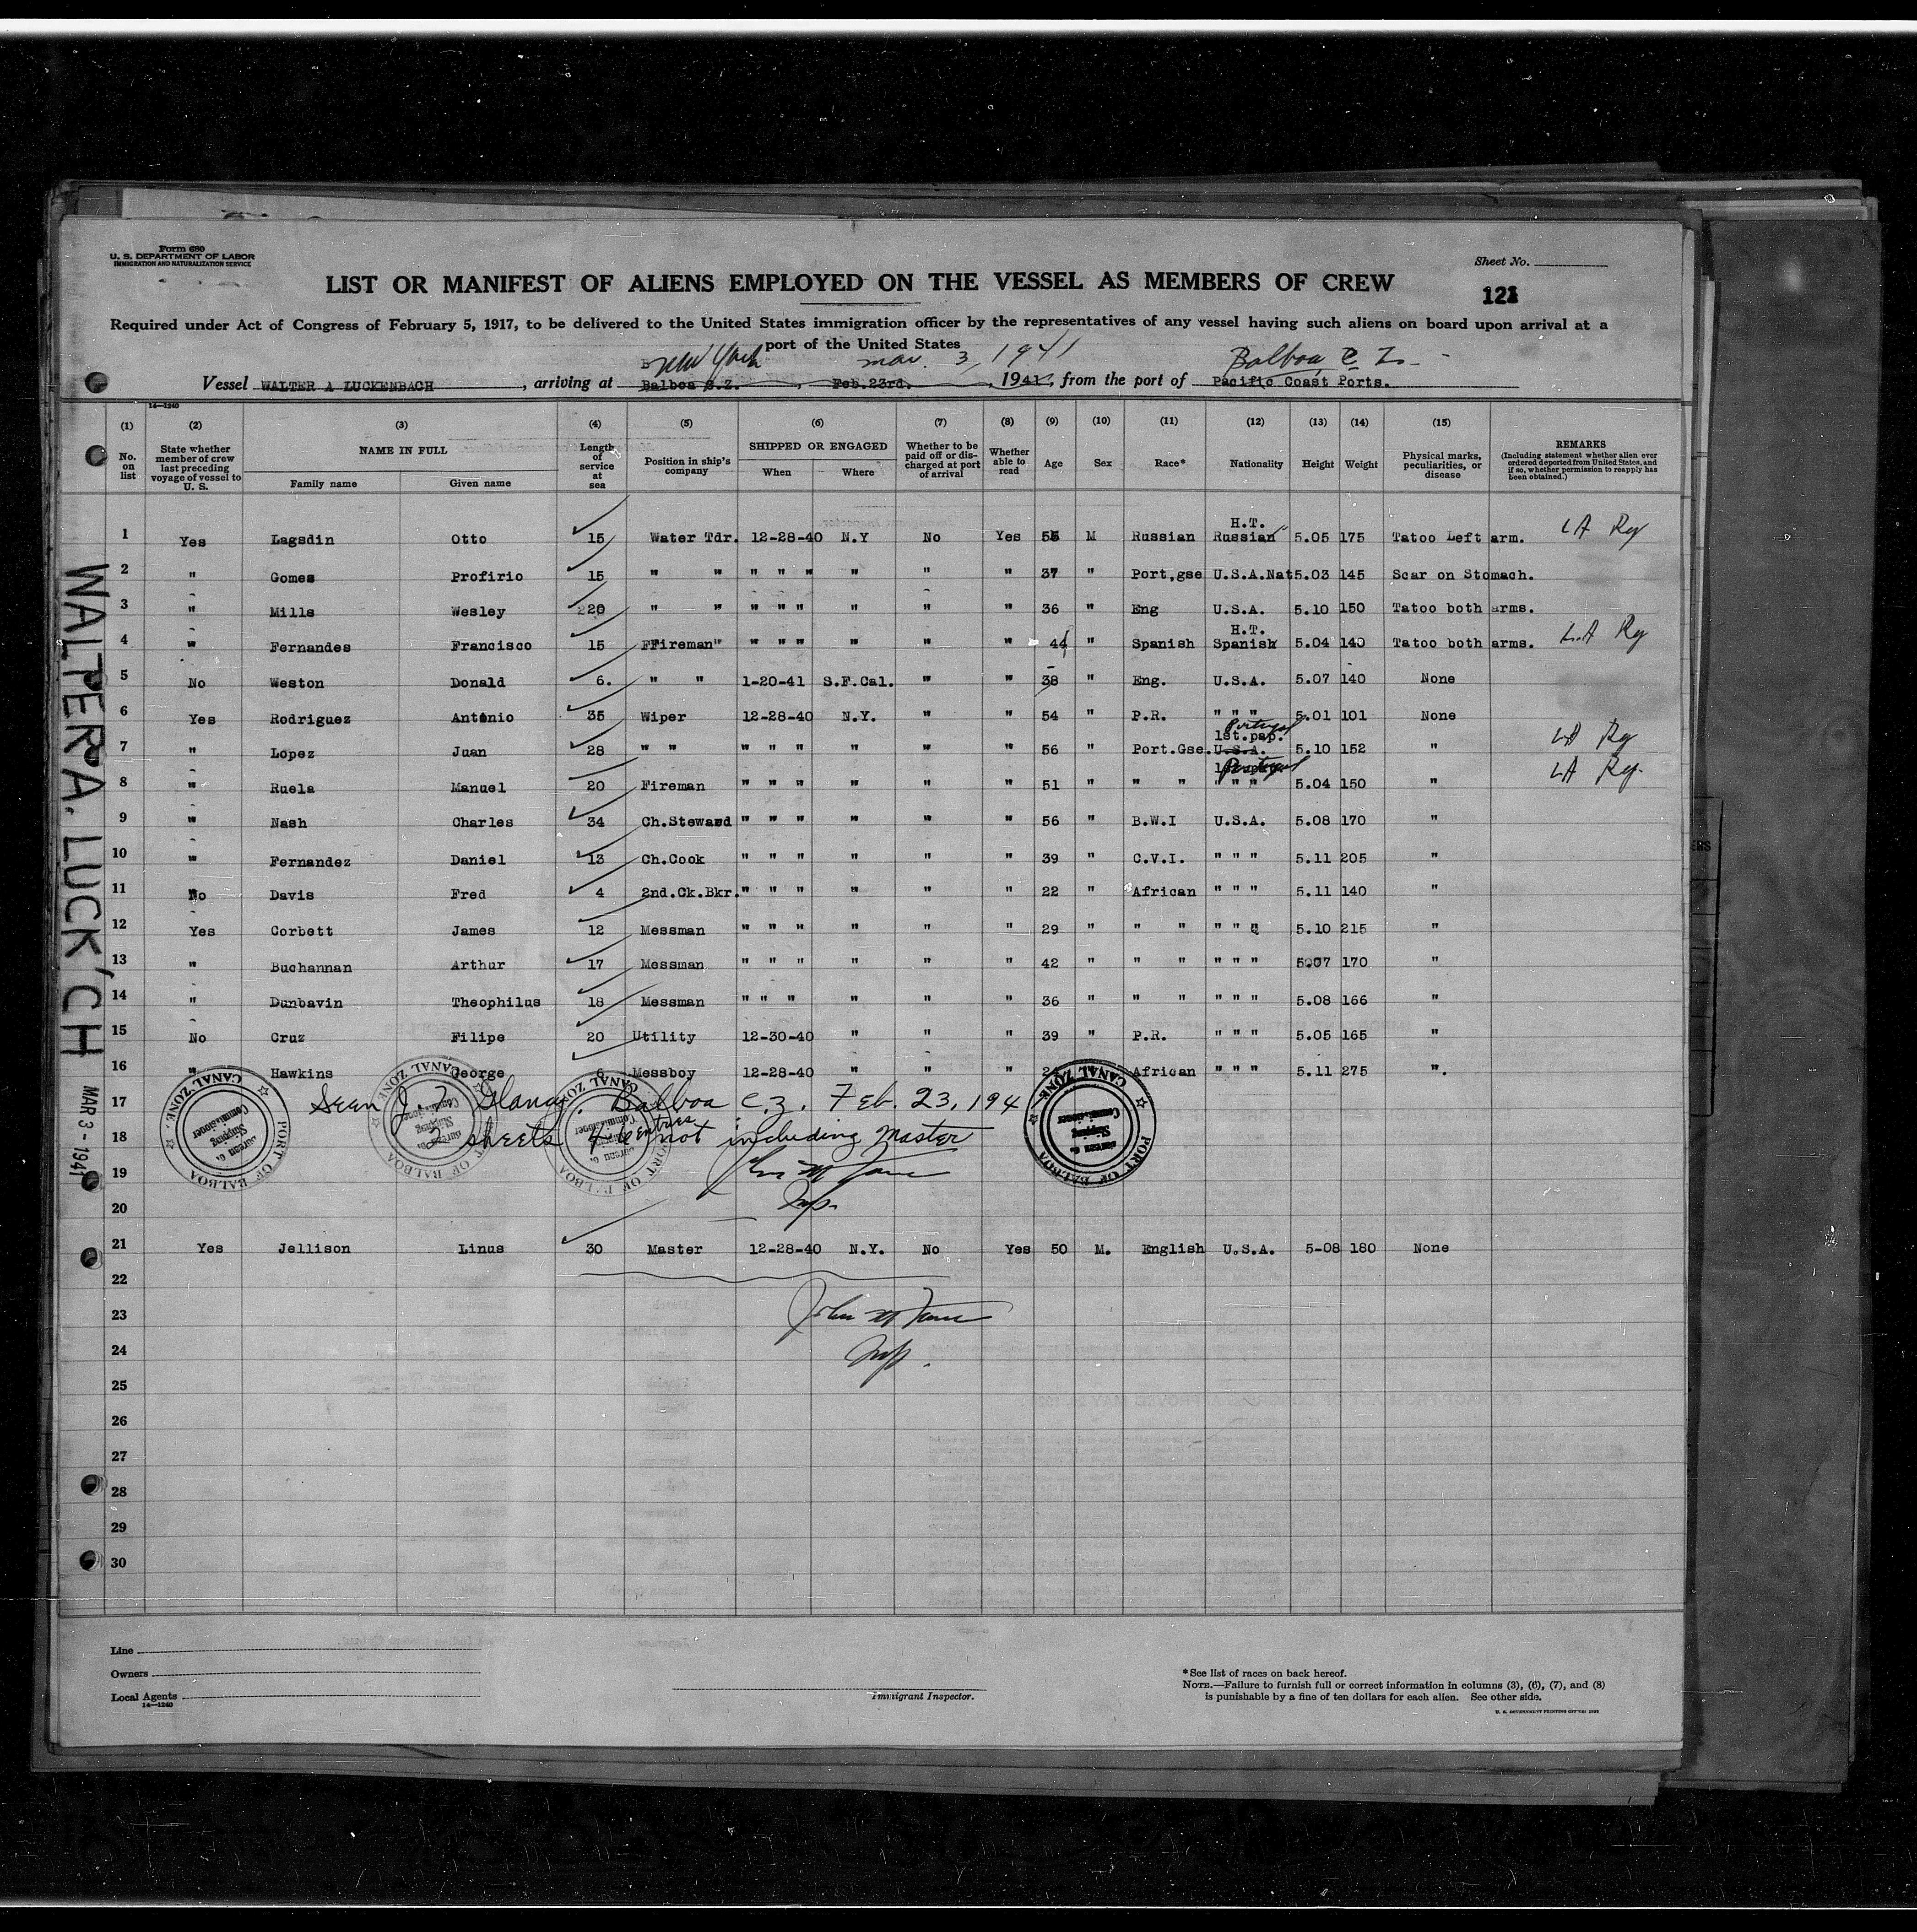 Form 680
U. S. DEPARTMENT OF LABOR
IMMIGRATION AND NATURALIZATION SERVICE
Sheet No.
LIST OR MANIFEST OF ALIENS EMPLOYED ON THE VESSEL AS MEMBERS OF CREW
Required under Act of Congress of February 5, 1917, to be delivered to the United States immigration officer by the representatives of any vessel having such aliens on board upon arrival at a
port of the United States
New York Mar. 3, 1941 Balboa C Z
Vessel WALTER A LUCKENBACH, arriving at Balboa C.Z., Feb.23rd., 1941, from the port of Pacific Coast Ports.
14-1240
(1) (2) (3) (4) (5) (6) (7) (8) (9) (10) (11) (12) (13) (14) (15)
No. on list
State whether member of crew last preceding voyage of vessel to U. S.
NAME IN FULL
Family name Given name
Length of service at sea
Position in ship's company
SHIPPED OR ENGAGED
When Where
Whether to be paid off or discharged at port of arrival
Whether able to read
Age Sex Race* Nationality Height Weight
Physical marks, peculiarities, or disease
REMARKS
(Including statement whether alien ever ordered deported from United States, and if so, whether permission to reapply has been obtained.)
H.T.
1 Yes Lagsdin Otto 15 Water Tdr. 12-28-40 N.Y No Yes M Russian Russian 5.05 175 Tatoo Left arm. LA Rg
2 " Gomes Profirio 15 " " " " " " " " 37 " Port,gse U.S.A.Nat 5.03 145 Scar on Stomach.
3 " Mills Wesley 20 " " " " " " " " 36 " Eng U.S.A. 5.10 150 Tatoo both arms.
H.T.
4 " Fernandes Francisco 15 FFireman" " " " " " " 44 " Spanish Spanish 5.04 140 Tatoo both arms. L.A Rg
5 No Weston Donald 6. " " 1-20-41 S.F.Cal. " " 38 " Eng. U.S.A. 5.07 140 None
6 Yes Rodriguez Antonio 35 Wiper 12-28-40 N.Y. " " 54 " P.R. " " " 5.01 101 None
Portugal
1st.pap.
7 " Lopez Juan 28 " " " " " " " " 56 " Port.Gse. U.S.A. 5.10 152 " LA Rg
Portugal
8 " Ruela Manuel 20 Fireman " " " " " " 51 " " " " " " 5.04 150 " LA Rg.
9 " Nash Charles 34 Ch.Steward " " " " " " 56 " B.W.I U.S.A. 5.08 170 "
10 " Fernandez Daniel 13 Ch.Cook " " " " " " 39 " C.V.I. " " " 5.11 205 "
11 No Davis Fred 4 2nd.Ck.Bkr. " " " " " " 22 " African " " " 5.11 140 "
12 Yes Corbett James 12 Messman " " " " " " 29 " " " " " " 5.10 215 "
13 " Buchannan Arthur 17 Messman " " " " " " 42 " " " " " " 5.07 170 "
14 " Dunbavin Theophilus 18 Messman " " " " " " 36 " " " " " " 5.08 166 "
15 No Cruz Filipe 20 Utility 12-30-40 " " " 39 " P.R. " " " 5.05 165 "
16 " Hawkins George 6 Messboy 12-28-40 " " " African " " " 5.11 275 ".
17 Seen Balboa C.Z. Feb. 23, 194
18 2 sheets 46 entries not including Master
19
20 Insp.
21 Yes Jellison Linus 30 Master 12-28-40 N.Y. No Yes 50 M. English U.S.A. 5-08 180 None
22
23
24 Insp.
25
26
27
28
29
30
WALTER A. LUCK'CH
MAR 3 - 1941
CANAL ZONE. PORT OF BALBOA Shipping Commissioner
CANAL ZONE. PORT OF BALBOA Shipping Commissioner
CANAL ZONE. PORT OF BALBOA Shipping Commissioner
CANAL ZONE. PORT OF BALBOA Shipping Commissioner
Line
Owners
Local Agents
14-1240
Immigrant Inspector.
*See list of races on back hereof.
NOTE.—Failure to furnish full or correct information in columns (3), (6), (7), and (8)
is punishable by a fine of ten dollars for each alien. See other side.
U. S. GOVERNMENT PRINTING OFFICE